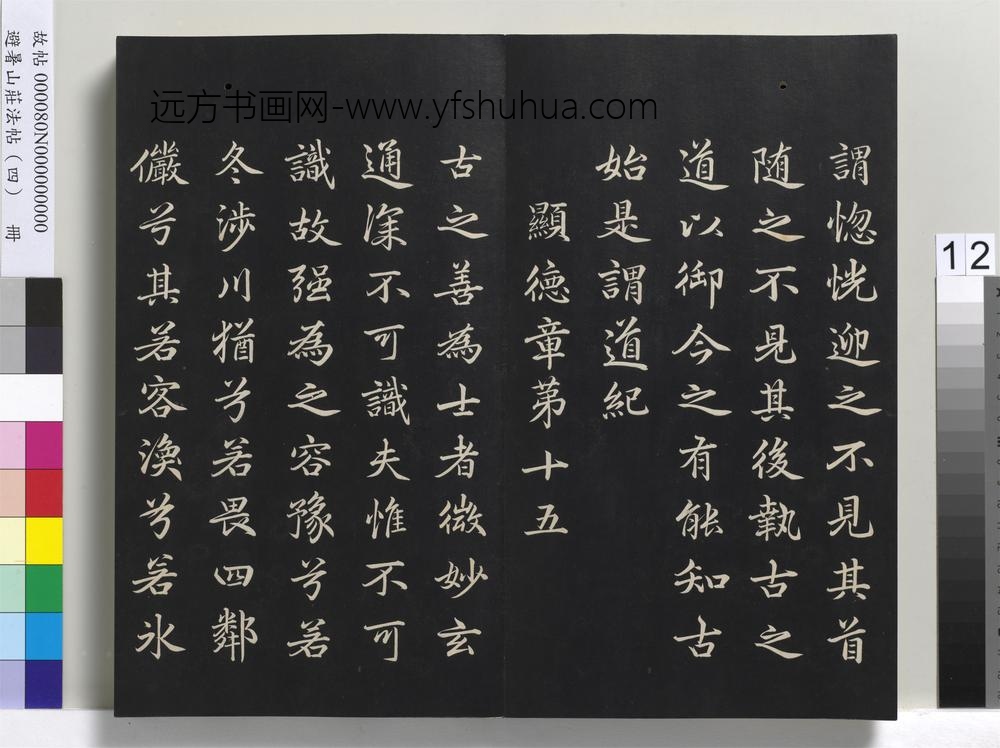 远方书画网-www.yfshuhua.com
謂惚恍迎之不見其首
随之不見其後執古之
道以御今之有能知古
始是謂道紀
顯德章第十五
古之善為士者微妙玄
通深不可識夫惟不可
識故强為之容豫兮若
冬涉川猶兮若畏四鄰
儼兮其若容渙兮若氷
故帖 000080N000000000
避暑山莊法帖(四) 冊
12